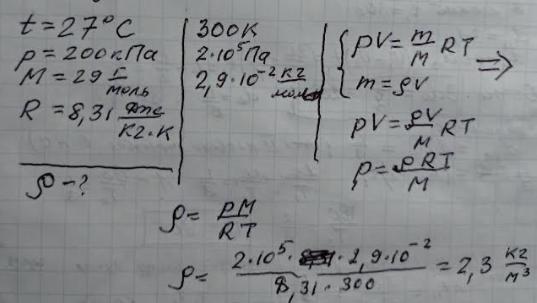 t = 27°C
p = 200 кПа
M = 29 г/моль
R = 8,31 Дж/кг·К
ρ - ?
300К
2·10⁵ Па
2,9·10⁻² кг/моль
{ pV = m/M RT
m = ρV ⇒
pV = ρV/M RT
p = ρRT/M
ρ = pM/RT
ρ = 2·10⁵ · 2,9·10⁻² / 8,31·300 = 2,3 кг/м³